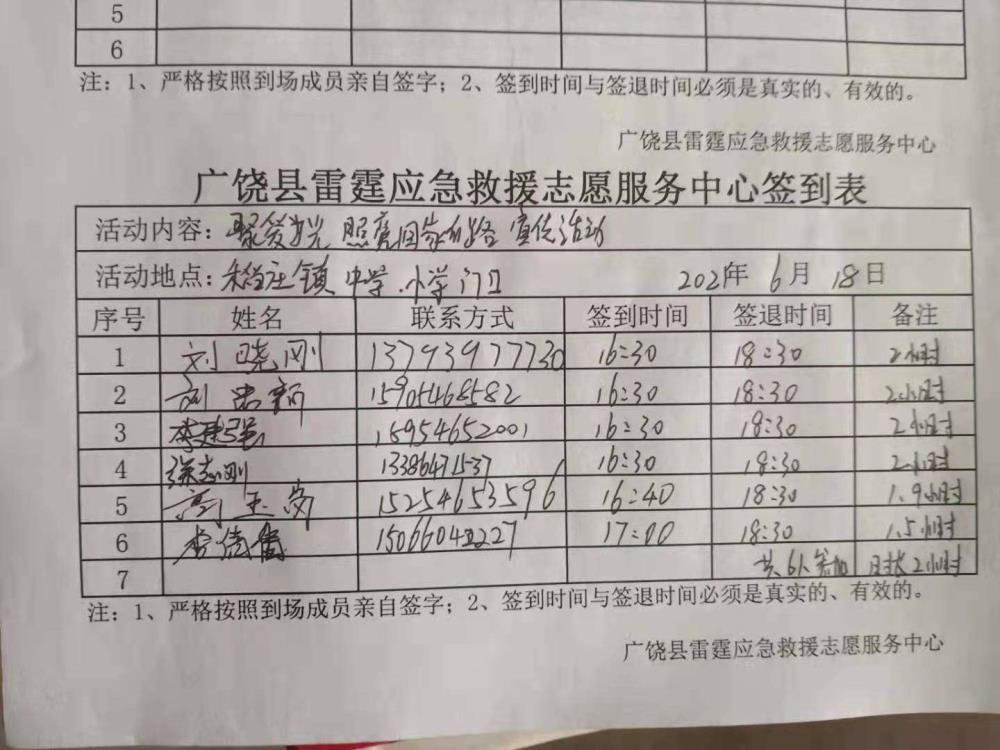 5
6
注：1、严格按照到场成员亲自签字；2、签到时间与签退时间必须是真实的、有效的。
广饶县雷霆应急救援志愿服务中心
广饶县雷霆应急救援志愿服务中心签到表
活动内容：聚爱发光 照亮回家的路 宣传活动
活动地点：稻庄镇 中学.小学门口 2021年 6月 18日
序号 姓名 联系方式 签到时间 签退时间 备注
1 刘晓刚 13793977730 16:30 18:30 2小时
2 刘 15905468582 16:30 18:30 2小时
3 李建强 15954652001 16:30 18:30 2小时
4 徐志刚 16:30 18:30 2小时
5 高玉岗 15254653596 16:40 18:30 1.9小时
6 李 17:00 18:30 1.5小时
7 共6人参加 时长2小时
注：1、严格按照到场成员亲自签字；2、签到时间与签退时间必须是真实的、有效的。
广饶县雷霆应急救援志愿服务中心